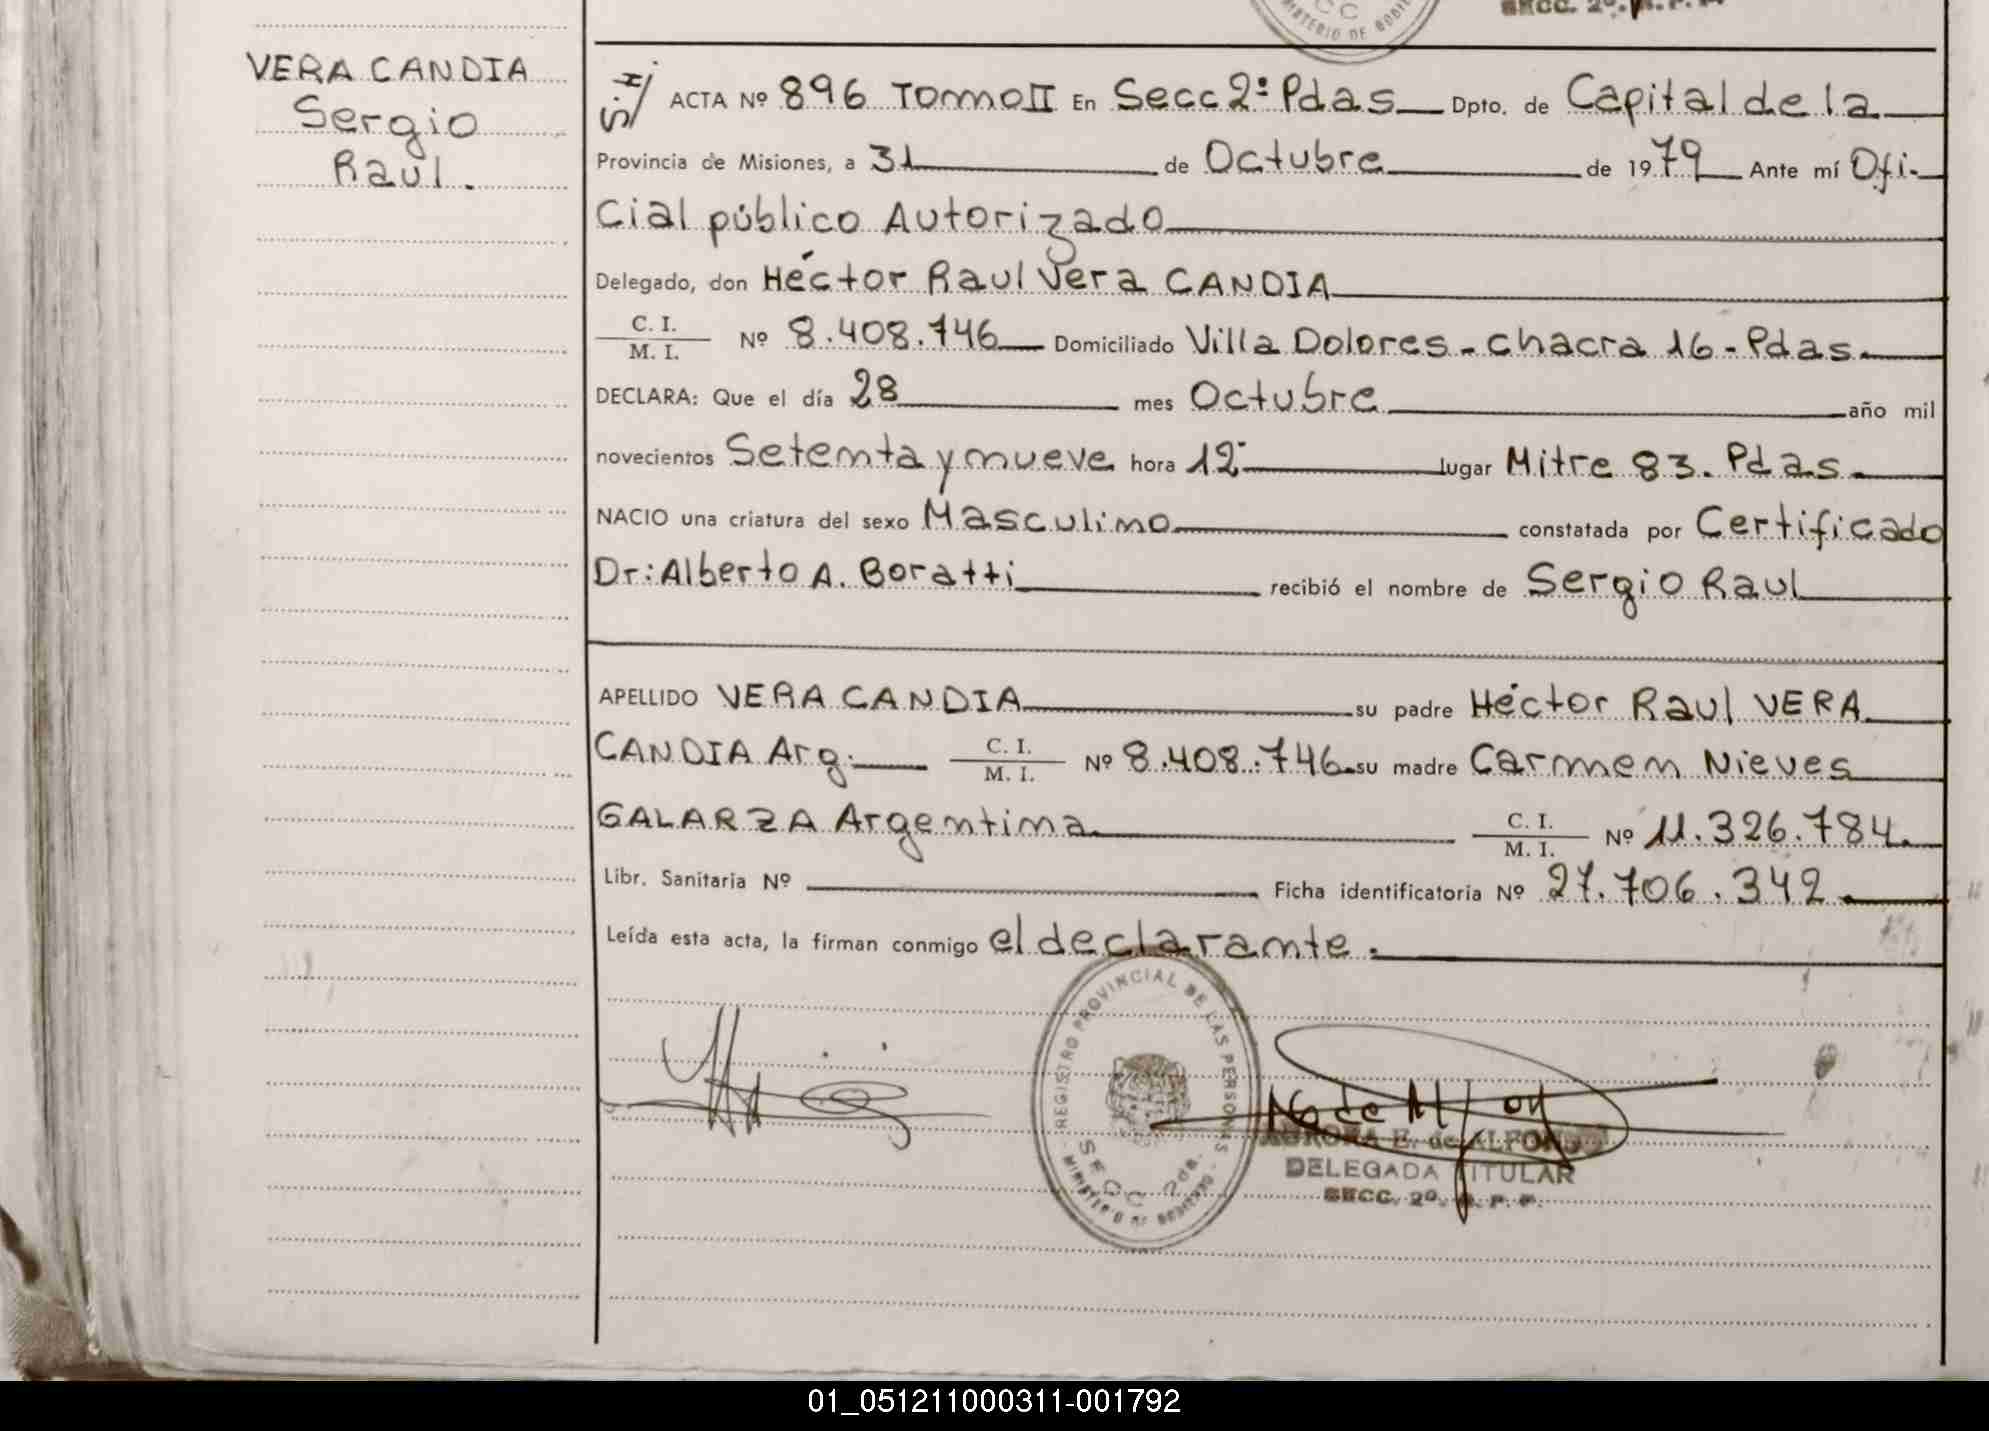 SECC. 2º. R. P. P.
CC
MINISTERIO DE GOBIE
VERA CANDIA
Sergio
Raul.
ACTA Nº 896 Tomo II En Secc 2ª Pdas Dpto. de Capital de la
Provincia de Misiones, a 31 de Octubre de 1979 Ante mí Ofi-
cial público Autorizado
Delegado, don Héctor Raul Vera CANDIA
C. I.
M. I. Nº 8.408.746 Domiciliado Villa Dolores - chacra 16 - Pdas.
DECLARA: Que el día 28 mes Octubre año mil
novecientos Setenta y nueve hora 12 lugar Mitre 83. Pdas.
NACIO una criatura del sexo Masculino constatada por Certificado
Dr: Alberto A. Boratti recibió el nombre de Sergio Raul
APELLIDO VERA CANDIA su padre Héctor Raul VERA
CANDIA Arg. C. I. M. I. Nº 8.408.746 su madre Carmen Nieves
GALARZA Argentina C. I. M. I. Nº 11.326.784.
Libr. Sanitaria Nº Ficha identificatoria Nº 27.706.342.
Leída esta acta, la firman conmigo el declarante.
REGISTRO PROVINCIAL DE LAS PERSONAS
SECC 2da.
MINISTERIO DE GOBIERNO
AURORA E. de ALFONSO
DELEGADA TITULAR
SECC. 2º. R. P. P.
01_051211000311-001792